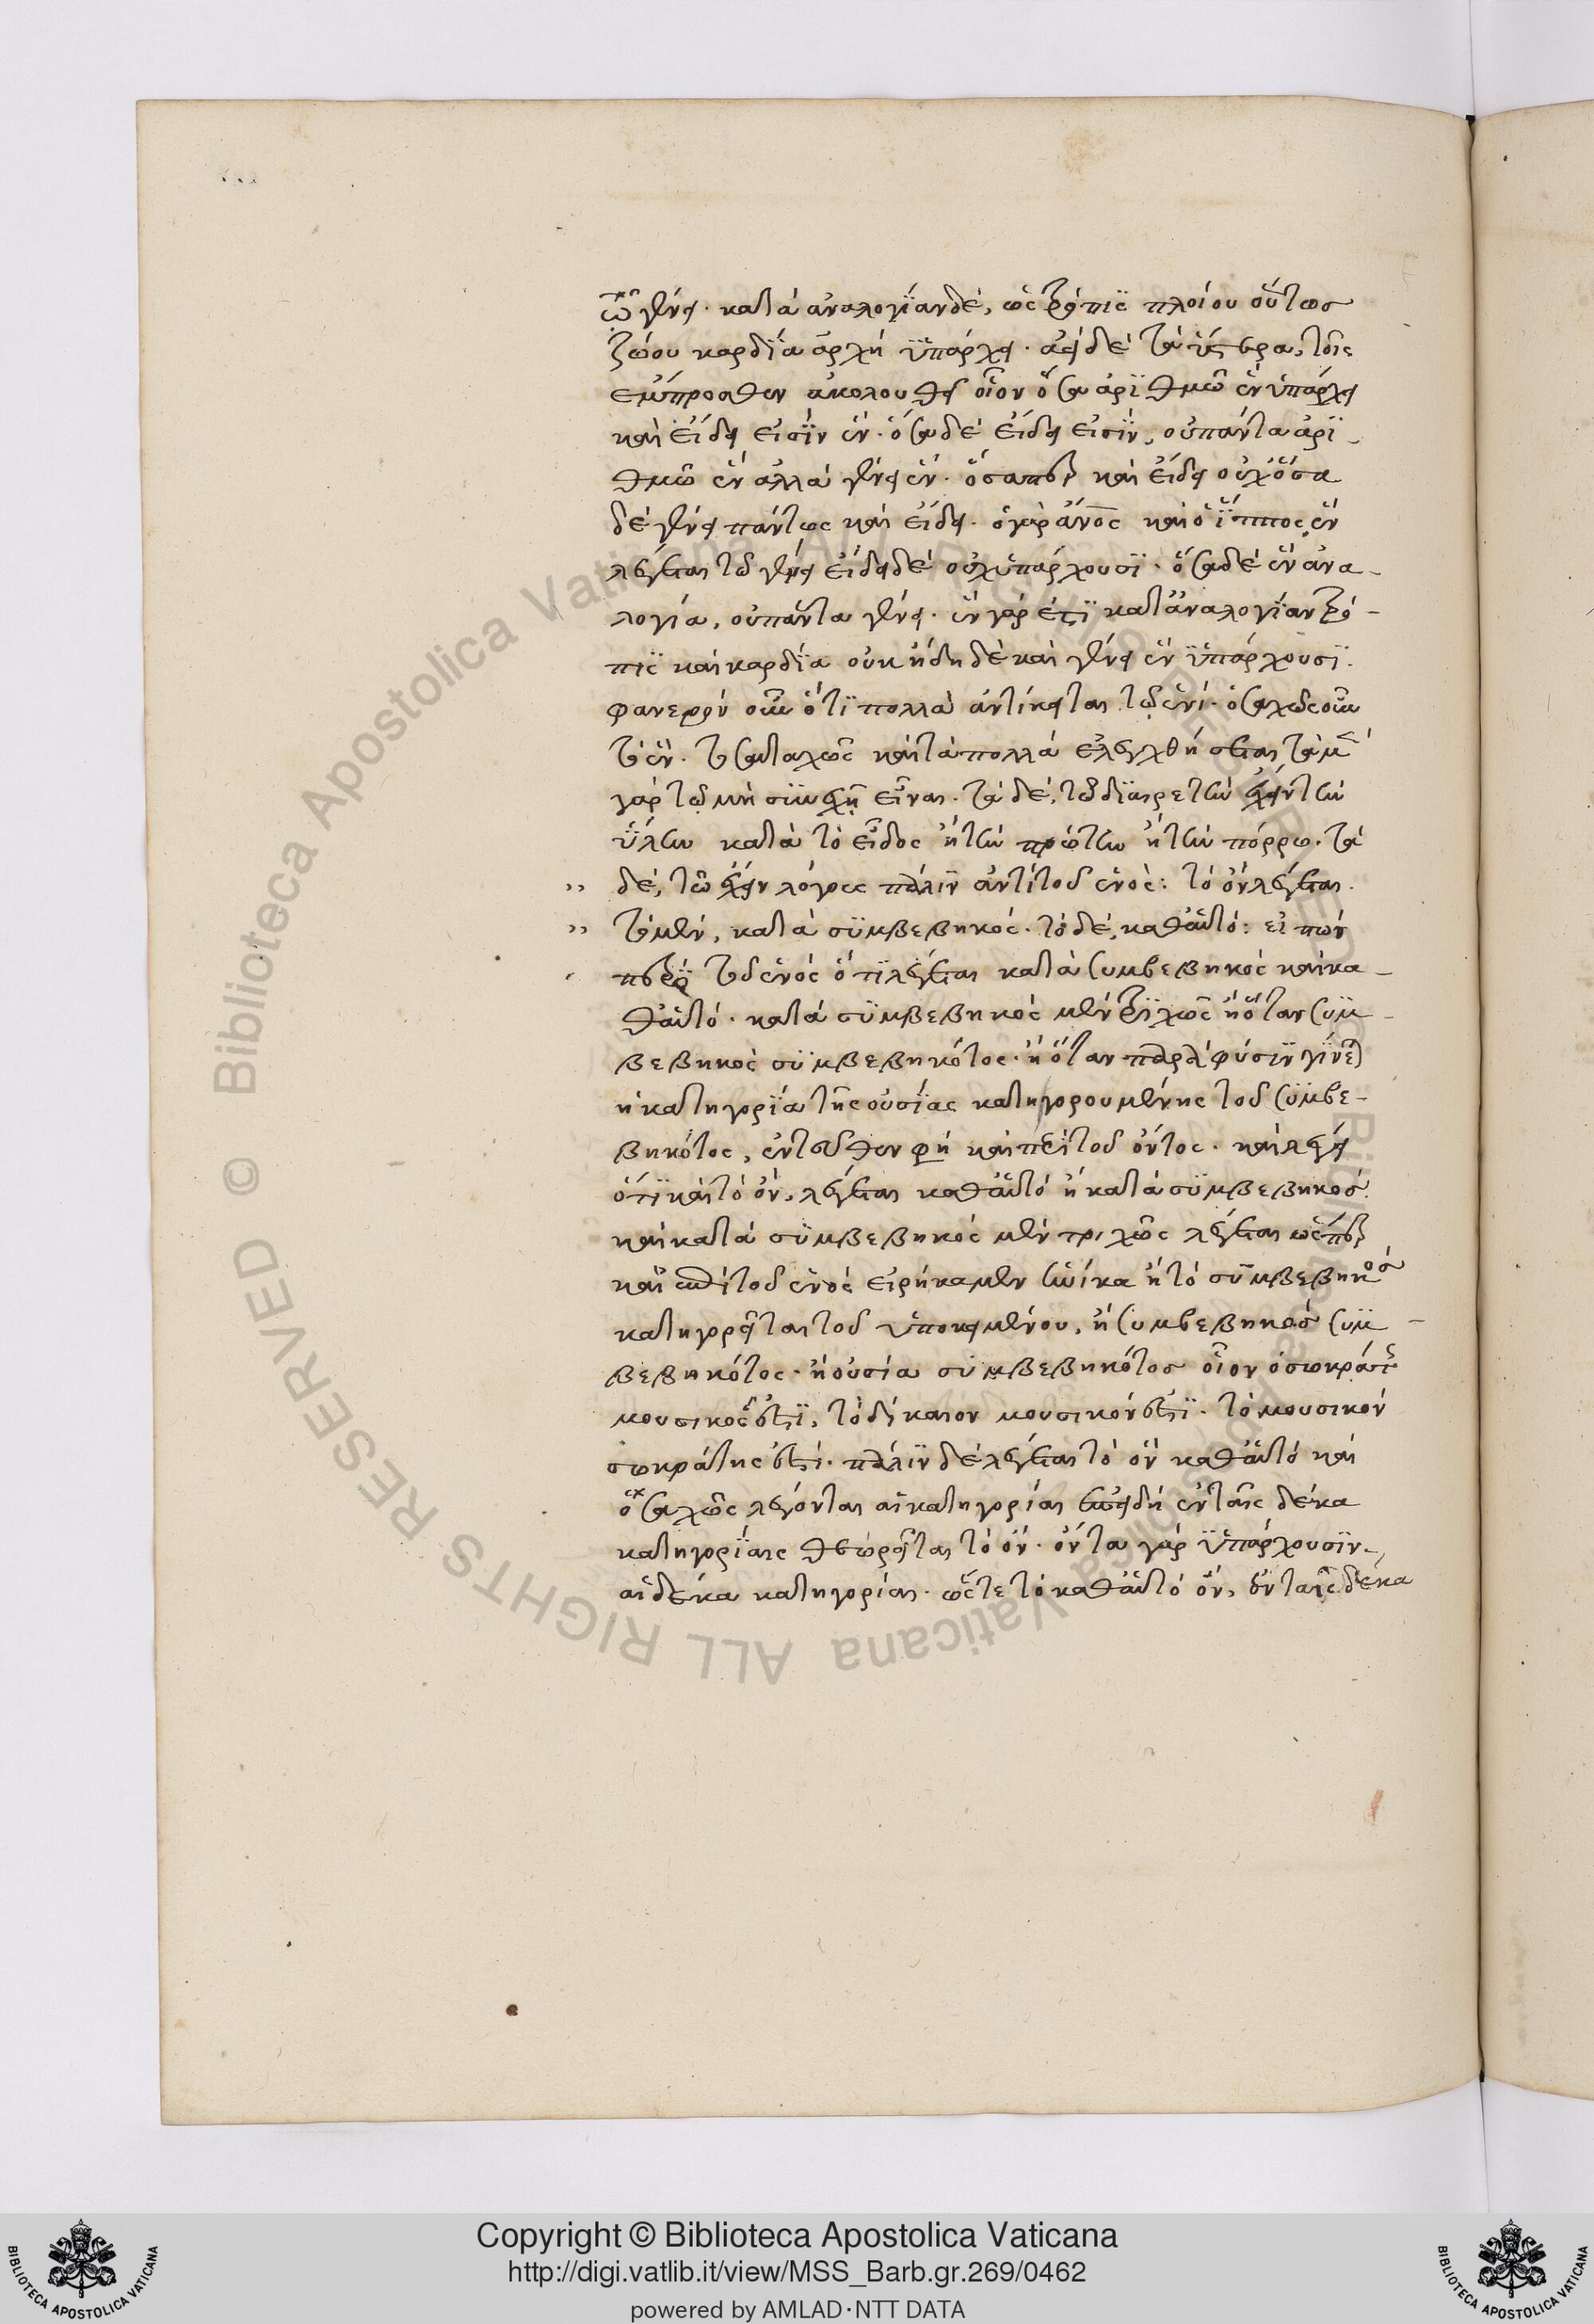 τῶ γένει. κατὰ ἀναλογίαν δέ, ὡς τρόπις πλοίου οὕτως
ζώου καρδία ἀρχὴ ὑπάρχει. ἀεὶ δὲ τὰ ὕστερα, τοῖς
ἔμπροσθεν ἀκολουθεῖ οἷον ὅσα ἀριθμῶ ἓν ὑπάρχει
καὶ εἴδει εἰσὶν ἕν. ὅσα δὲ εἴδει εἰσὶν, οὐ πάντα ἀρι-
θμῶ ἓν ἀλλὰ γένει ἕν. ὅσαπερ καὶ εἴδει οὐχ ὅσα
δὲ γένει πάντως καὶ εἴδει. ὁ γὰρ ἄνος καὶ ὁ ἵππος ἓν
λέγεται τῶ γένει εἴδει δὲ οὐχ ὑπάρχουσι. ὅσα δὲ ἓν ἀνα-
λογία, οὐ πάντα γένει. ἓν γὰρ ἐστὶ κατ' ἀναλογίαν τρό-
πις καὶ καρδία οὐκ ἤδη δὲ καὶ γένει ἓν ὑπάρχουσι.
φανερὸν οὖν ὅτι πολλὰ ἀντίκειται τῷ ἑνί. ὁσαχῶς οὖν
τὸ ἕν. τοσαυταχῶς καὶ τὰ πολλὰ ἐλεγχθήσεται τὰ μὲν
γὰρ τῷ μὴ συνεχῆ εἶναι. τὰ δέ, τῶ διαιρετὴν ἔχειν τὴν
ὕλην κατὰ τὸ εἶδος ἢ τὴν πρώτην ἢ τὴν πόρρω. τὰ
δέ, τῶ ἔχειν λόγους πάλιν ἀντὶ τοῦ ἑνός: τὸ ὂν λέγεται.
τὸ μὲν, κατὰ συμβεβηκός. τὸ δέ, καθ' αὑτό: εἰπὼν
περὶ τοῦ ἑνός ὅτι λέγεται κατὰ συμβεβηκός καὶ κα-
θ' αὑτό. κατὰ συμβεβηκὸς μὲν τριχῶς ἢ ὅταν συμ-
βεβηκὸς συμβεβηκότος. ἢ ὅταν παρὰ φύσιν γίνεται
ἡ κατηγορία τῆς οὐσίας κατηγορουμένης τοῦ συμβε-
βηκότος, ἐντεῦθεν φησὶ καὶ περὶ τοῦ ὄντος. καὶ λέγει
ὅτι καὶ τὸ ὄν, λέγεται καθ' αὑτό ἢ κατὰ συμβεβηκός.
καὶ κατὰ συμβεβηκὸς μὲν τριχῶς λέγεται ὥσπερ
καὶ ἐπὶ τοῦ ἑνός εἰρήκαμεν ἡνίκα ἢ τὸ συμβεβηκὸς
κατηγορεῖται τοῦ ὑποκειμένου, ἢ συμβεβηκὸς συμ-
βεβηκότος. ἢ οὐσία συμβεβηκότος οἷον ὁ σωκράτης
μουσικός ἐστι, τὸ δίκαιον μουσικόν ἐστι. τὸ μουσικὸν
σωκράτης ἐστί. πάλιν δὲ λέγεται τὸ ὂν καθ' αὑτό καὶ
ὁσαχῶς λέγονται αἱ κατηγορίαι ἐπειδὴ ἐν ταῖς δέκα
κατηγορίαις θεωρεῖται τὸ ὄν. ὄντα γὰρ ὑπάρχουσιν.
αἱ δέκα κατηγορίαι. ὥστε τὸ καθ' αὑτό ὄν, ἐν ταῖς δέκα
Copyright © Biblioteca Apostolica Vaticana
http://digi.vatlib.it/view/MSS_Barb.gr.269/0462
powered by AMLAD·NTT DATA